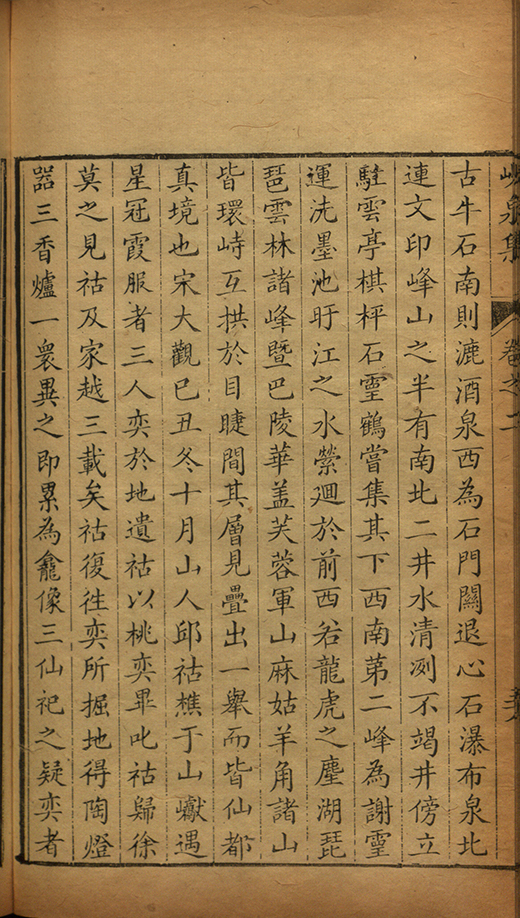 峴泉集 卷之二
古牛石南則漉酒泉西為石門關退心石瀑布泉北
連文印峰山之半有南北二井水清冽不竭井傍立
駐雲亭棋枰石霊鶴嘗集其下西南第二峰為謝霊
運洗墨池盱江之水縈迴於前西若龍虎之塵湖琵
琶雲林諸峰暨巴陵華盖芙蓉軍山麻姑羊角諸山
皆環峙互拱於目睫間其層見疊出一舉而皆仙都
真境也宋大觀己丑冬十月山人邱祜樵于山巘遇
星冠霞服者三人奕於地遺祜以桃奕畢叱祜歸徐
莫之見祜及家越三載矣祜復徃奕所掘地得陶燈
器三香爐一衆異之即累為龕像三仙祀之疑奕者